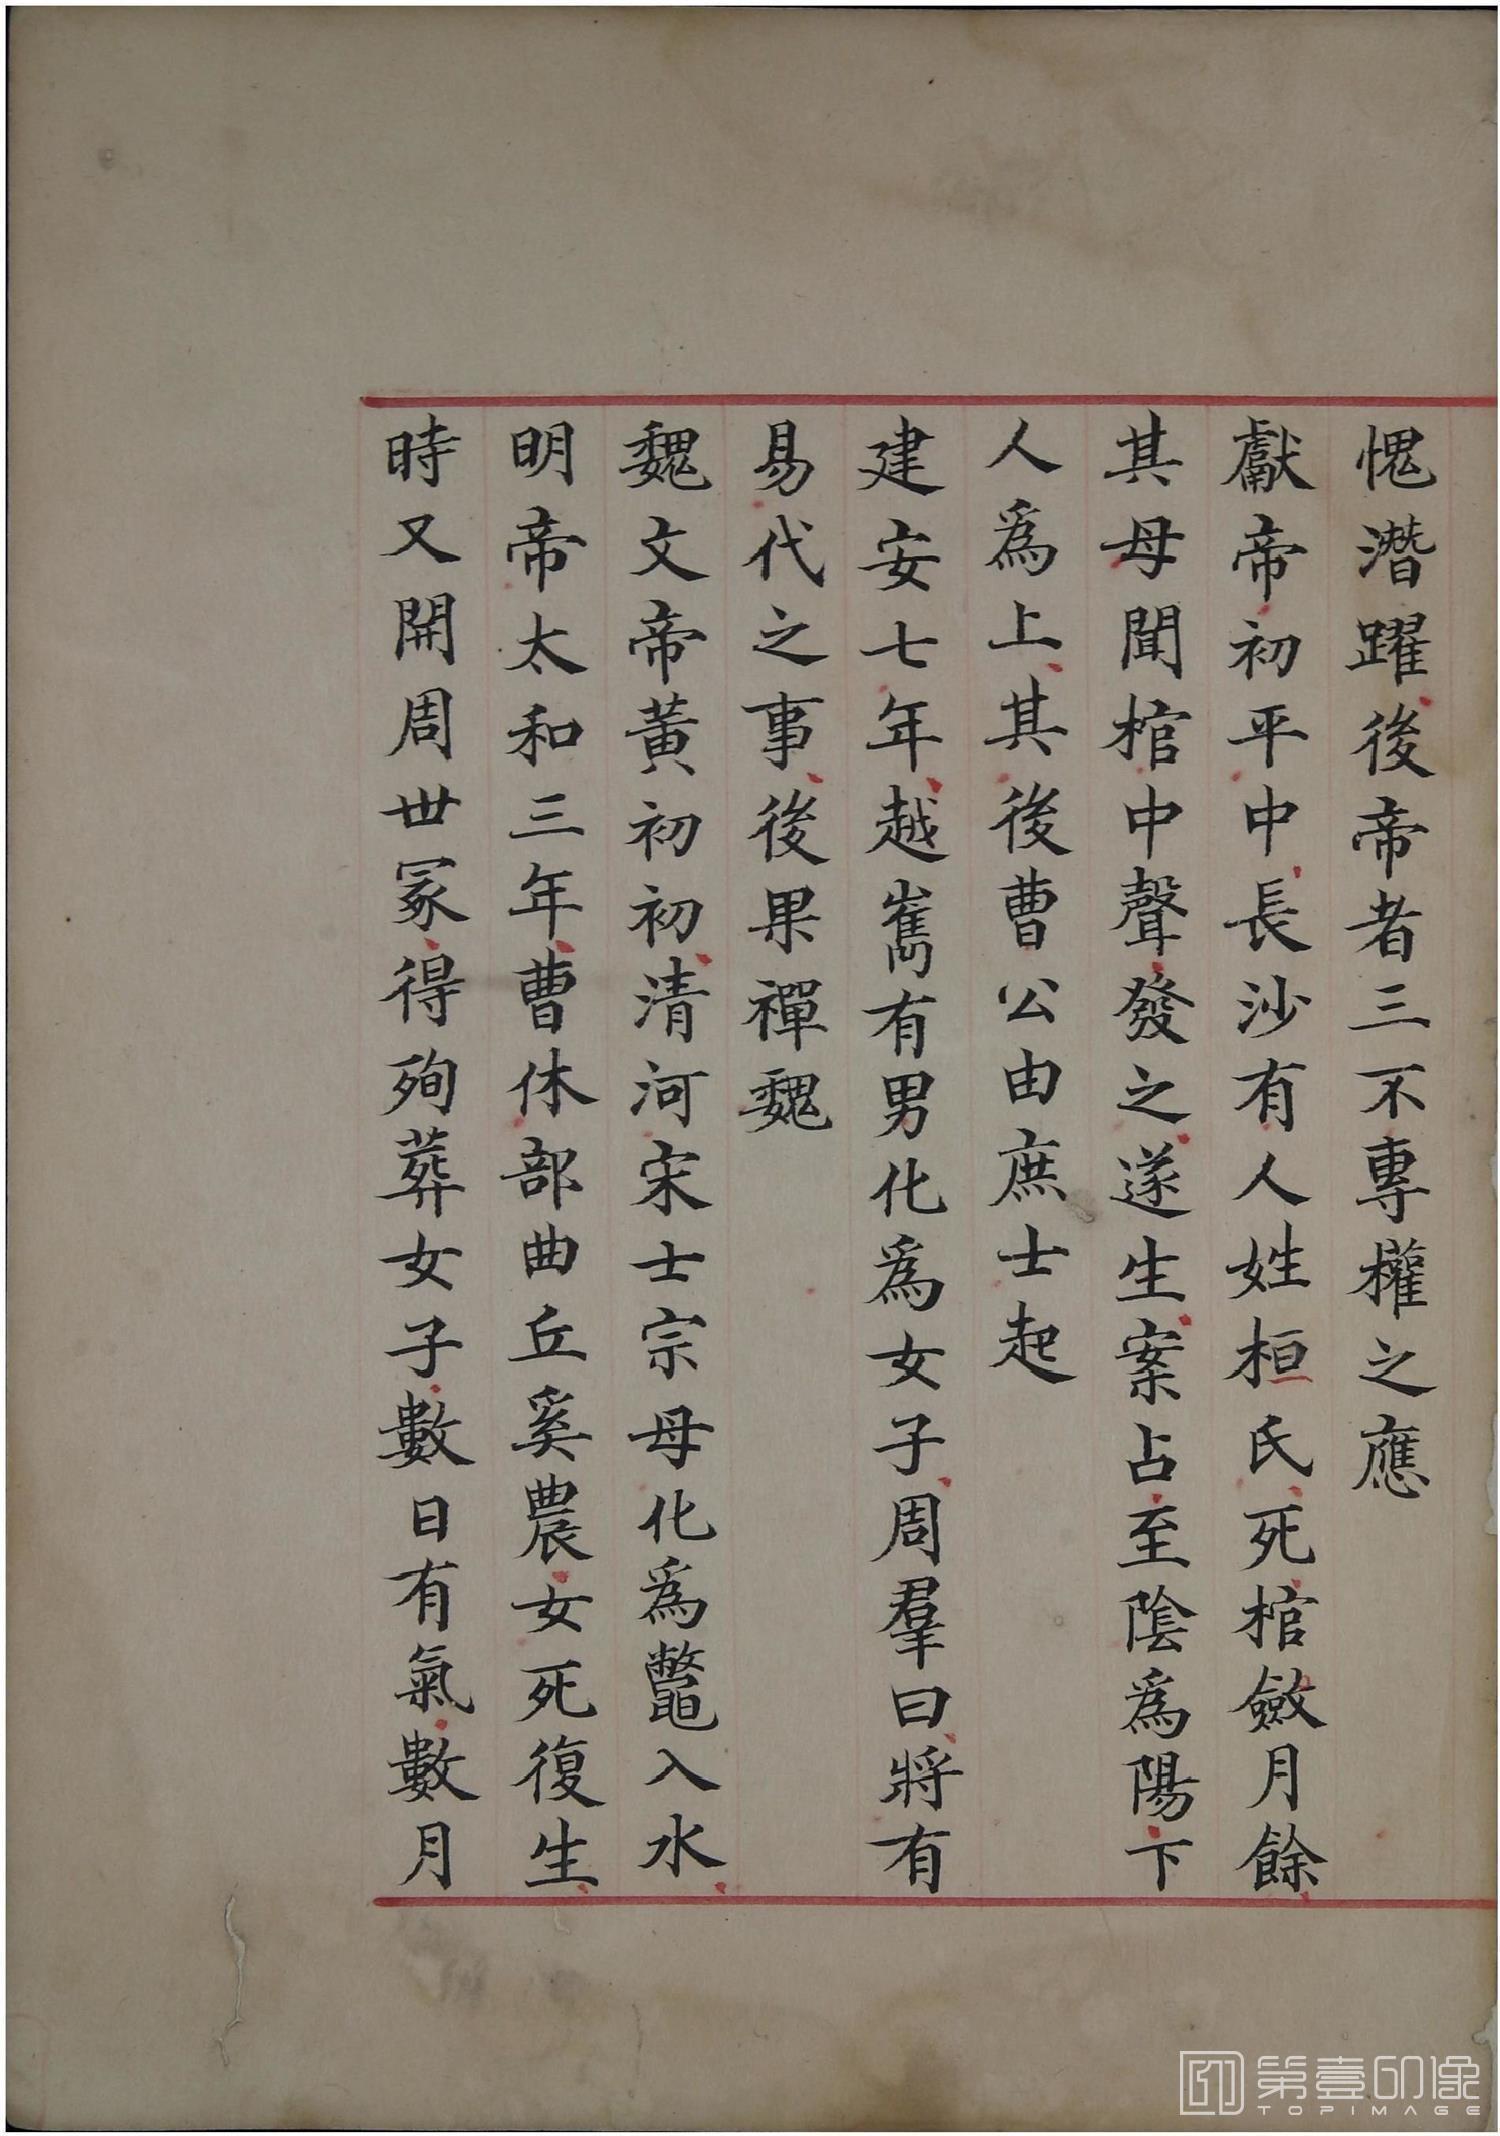 愧潛躍後帝者三不專權之應
獻帝初平中長沙有人姓桓氏死棺斂月餘
其母聞棺中聲發之遂生案占至陰爲陽下
人爲上其後曹公由庶士起
建安七年越嶲有男化爲女子周羣曰將有
易代之事後果禪魏
魏文帝黃初初清河宋士宗母化爲鼈入水
明帝太和三年曹休部曲丘奚農女死復生
時又開周世冢得殉葬女子數日有氣數月
第壹印像
TOPIMAGE